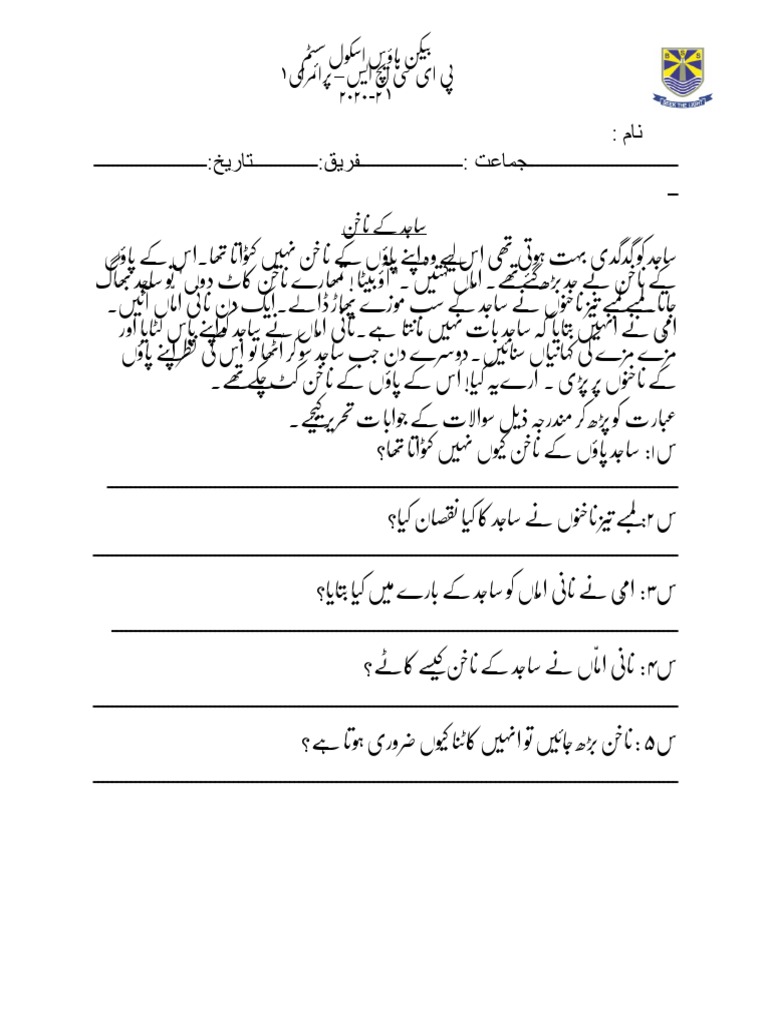 بیکن ہاؤس اسکول سسٹم
پی ای سی ایچ ایس – پرائمری ۱
۲۰۲۰-۲۱
SEEK THE LIGHT
نام :
ــــــــــــــــــــجماعت :ــــــــــــــــــــفریق:ــــــــــــــــــــتاریخ:ــــــــــــــــــــ
ساجد کے ناخن
ساجد کو گدگدی بہت ہوتی تھی اس لیے وہ اپنے پاؤں کے ناخن نہیں کٹواتا تھا۔اس کے پاؤں
کے ناخن بے حد بڑھ گئے تھے۔ اماں کہتیں۔ "آؤ بیٹا! تمھارے ناخن کاٹ دوں "تو ساجد بھاگ
جاتا۔لمبے لمبے تیز ناخنوں نے ساجد کے سب موزے پھاڑ ڈالے۔ایک دن نانی اماں آئیں۔
امی نے انہیں بتایا کہ ساجد بات نہیں مانتا ہے۔نانی اماں نے ساجد کو اپنے پاس لٹایا اور
مزے مزے کی کہانیاں سنائیں۔دوسرے دن جب ساجد سو کر اٹھا تو اس کی نظر اپنے پاؤں
کے ناخنوں پر پڑی ۔ ارے یہ کیا! اس کے پاؤں کے ناخن کٹ چکے تھے۔
عبارت کو پڑھ کر مندرجہ ذیل سوالات کے جوابات تحریر کیجیے۔
س۱: ساجد پاؤں کے ناخن کیوں نہیں کٹواتا تھا؟
س۲: لمبے تیز ناخنوں نے ساجد کا کیا نقصان کیا؟
س۳: امی نے نانی اماں کو ساجد کے بارے میں کیا بتایا؟
س۴: نانی امّاں نے ساجد کے ناخن کیسے کاٹے؟
س۵: ناخن بڑھ جائیں تو انہیں کاٹنا کیوں ضروری ہوتا ہے؟